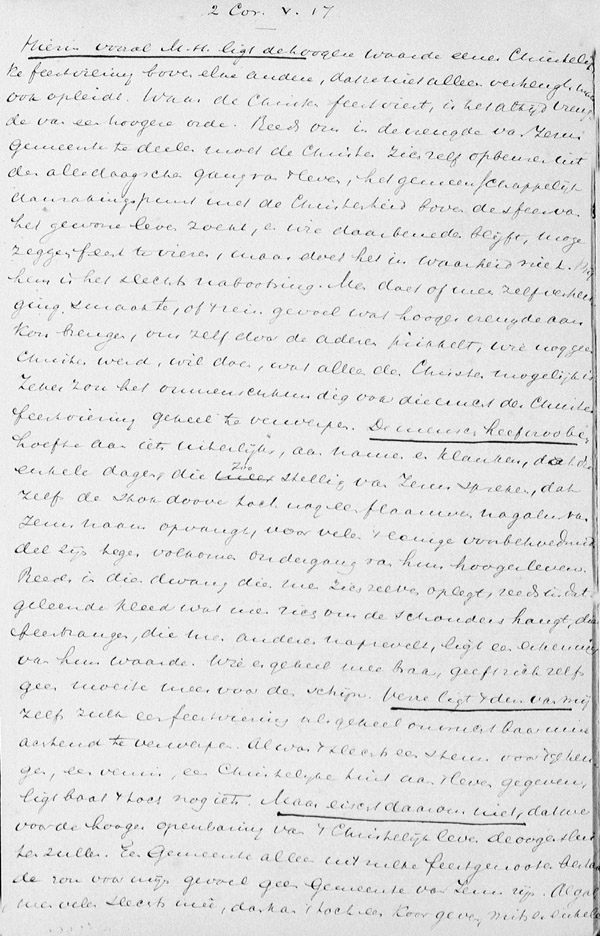 2 Cor. V. 17
Hierin vooral M.H. ligt de hoogere waarde eener Christelij
ke feestviering boven elke andere, dat ze niet alleen verheugt, maar
ook opleidt. Waar de Christen feest viert, is het altijd vreug
de van een hoogere orde. Reeds om in de vreugde van Jezus
Gemeente te deelen moet de Christen zich zelf opbeuren uit
den alledaagschen gang van 't leven, het gemeenschappelijk
aanrakingspunt met de Christenheid boven de sfeer van
het gewone leven zoeken, en wie daar beneden blijft, moge
zeggen feest te vieren, maar doet het in waarheid niet. Bij
hun is het slechts nabootsing. Men doet of men zelf verheu
ging smaakte, of 't rein gevoel wat hooger vreugde aan
kon brengen, ons zelf door de aderen prikkelt, wie nog geen
Christen werd, wil doen, wat alleen den Christen mogelijk is
Zeker zou het onmenschkundig ook die winst der Christen
feestviering geheel te verwerpen. De mensch heeft zoo
behoefte aan iets uiterlijks, aan namen en klanken, dat die
enkele dagen, die zoo stellig van Jezus spreken, dat
zelf de stok doove toch nog een flaauwen nagalm van
Jezus naam opvangt, voor velen 't eenige voorbehoedmid
del zijn tegen volkomen ondergang van hun hooger leven.
Reeds in die dwang die men zich zelven oplegt, reeds in dat
geleende kleed wat men zich om de schouders hangt, die
feestzangen, die men anderen naprevelt, ligt een erkenning
van hun waarde. Wie er geheel mee brak, geeft zich zelfs
geen moeite meer voor den schijn. Verre ligt 't dus van mij
zelf zulk een feestviering als geheel onwinstbaar
te verwerpen. Al was 't slechts een
een vernis, een Christelijke tint aan 't leven gegeven,
ligt baat 't toch nog iets. Maar eischt daarom niet, dat we
voor de hooger openbaring van 't Christelijk leven de oogen slui
ten zullen. Een Gemeente alleen uit zulke feestgenooten bestaan
de zou voor mijn gevoel geen Gemeente van Jezus zijn. Al gal
men velen slechts mee, daar kan 't toch een koor geven, mits er enkele